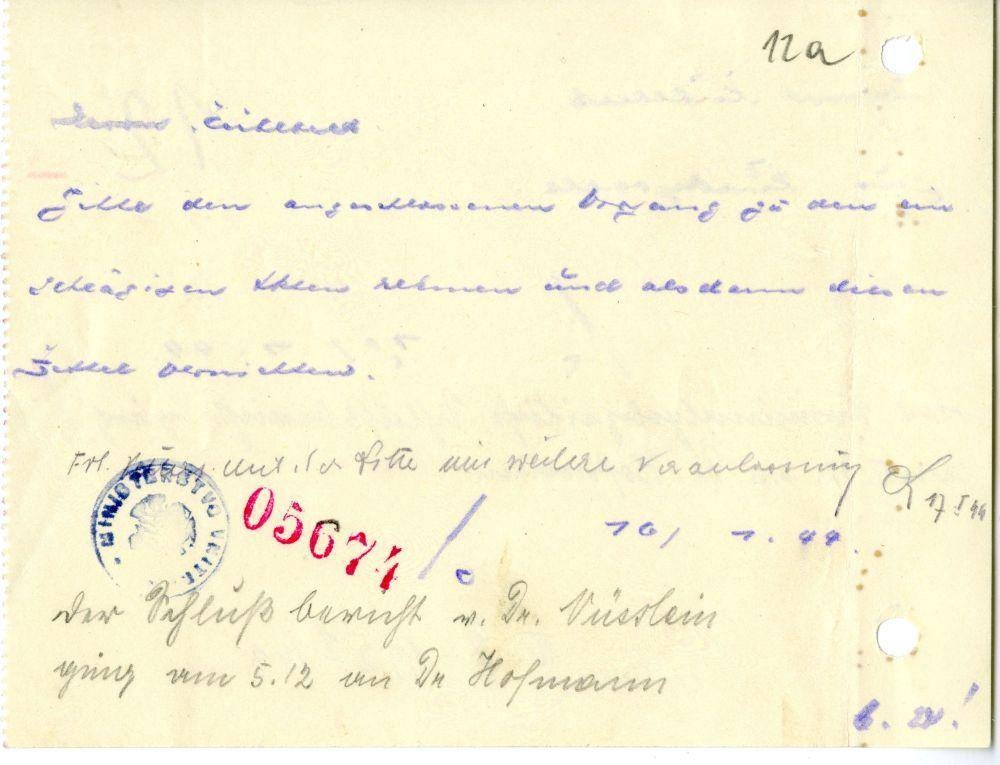 12a
Bitte den angeschlossenen Vorgang zu den ein
schlägigen Akten nehmen und alsdann diesen
Zettel vernichten.
Frl. mit der Bitte um weitere Veranlassung
17 I 44
MINISTERSTVO VNITR
05674
10/ 1. 44.
Der Schlußbericht v. Dr.
ging am 5.12 an Dr Hofmann